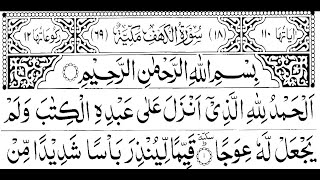 اٰیَاتُهَا ۱۱۰ (۱۸) سُوْرَةُ الْكَهْفِ مَكِّیَّةٌ (۶۹) رُكُوْعَاتُهَا ۱۲
بِسْمِ اللّٰهِ الرَّحْمٰنِ الرَّحِیْمِ
اَلْحَمْدُ لِلّٰهِ الَّذِیْۤ اَنْزَلَ عَلٰى عَبْدِهِ الْكِتٰبَ وَلَمْ
یَجْعَلْ لَّهٗ عِوَجًا ؕ سكتة ۱ قَیِّمًا لِّیُنْذِرَ بَاْسًا شَدِیْدًا مِّنْ